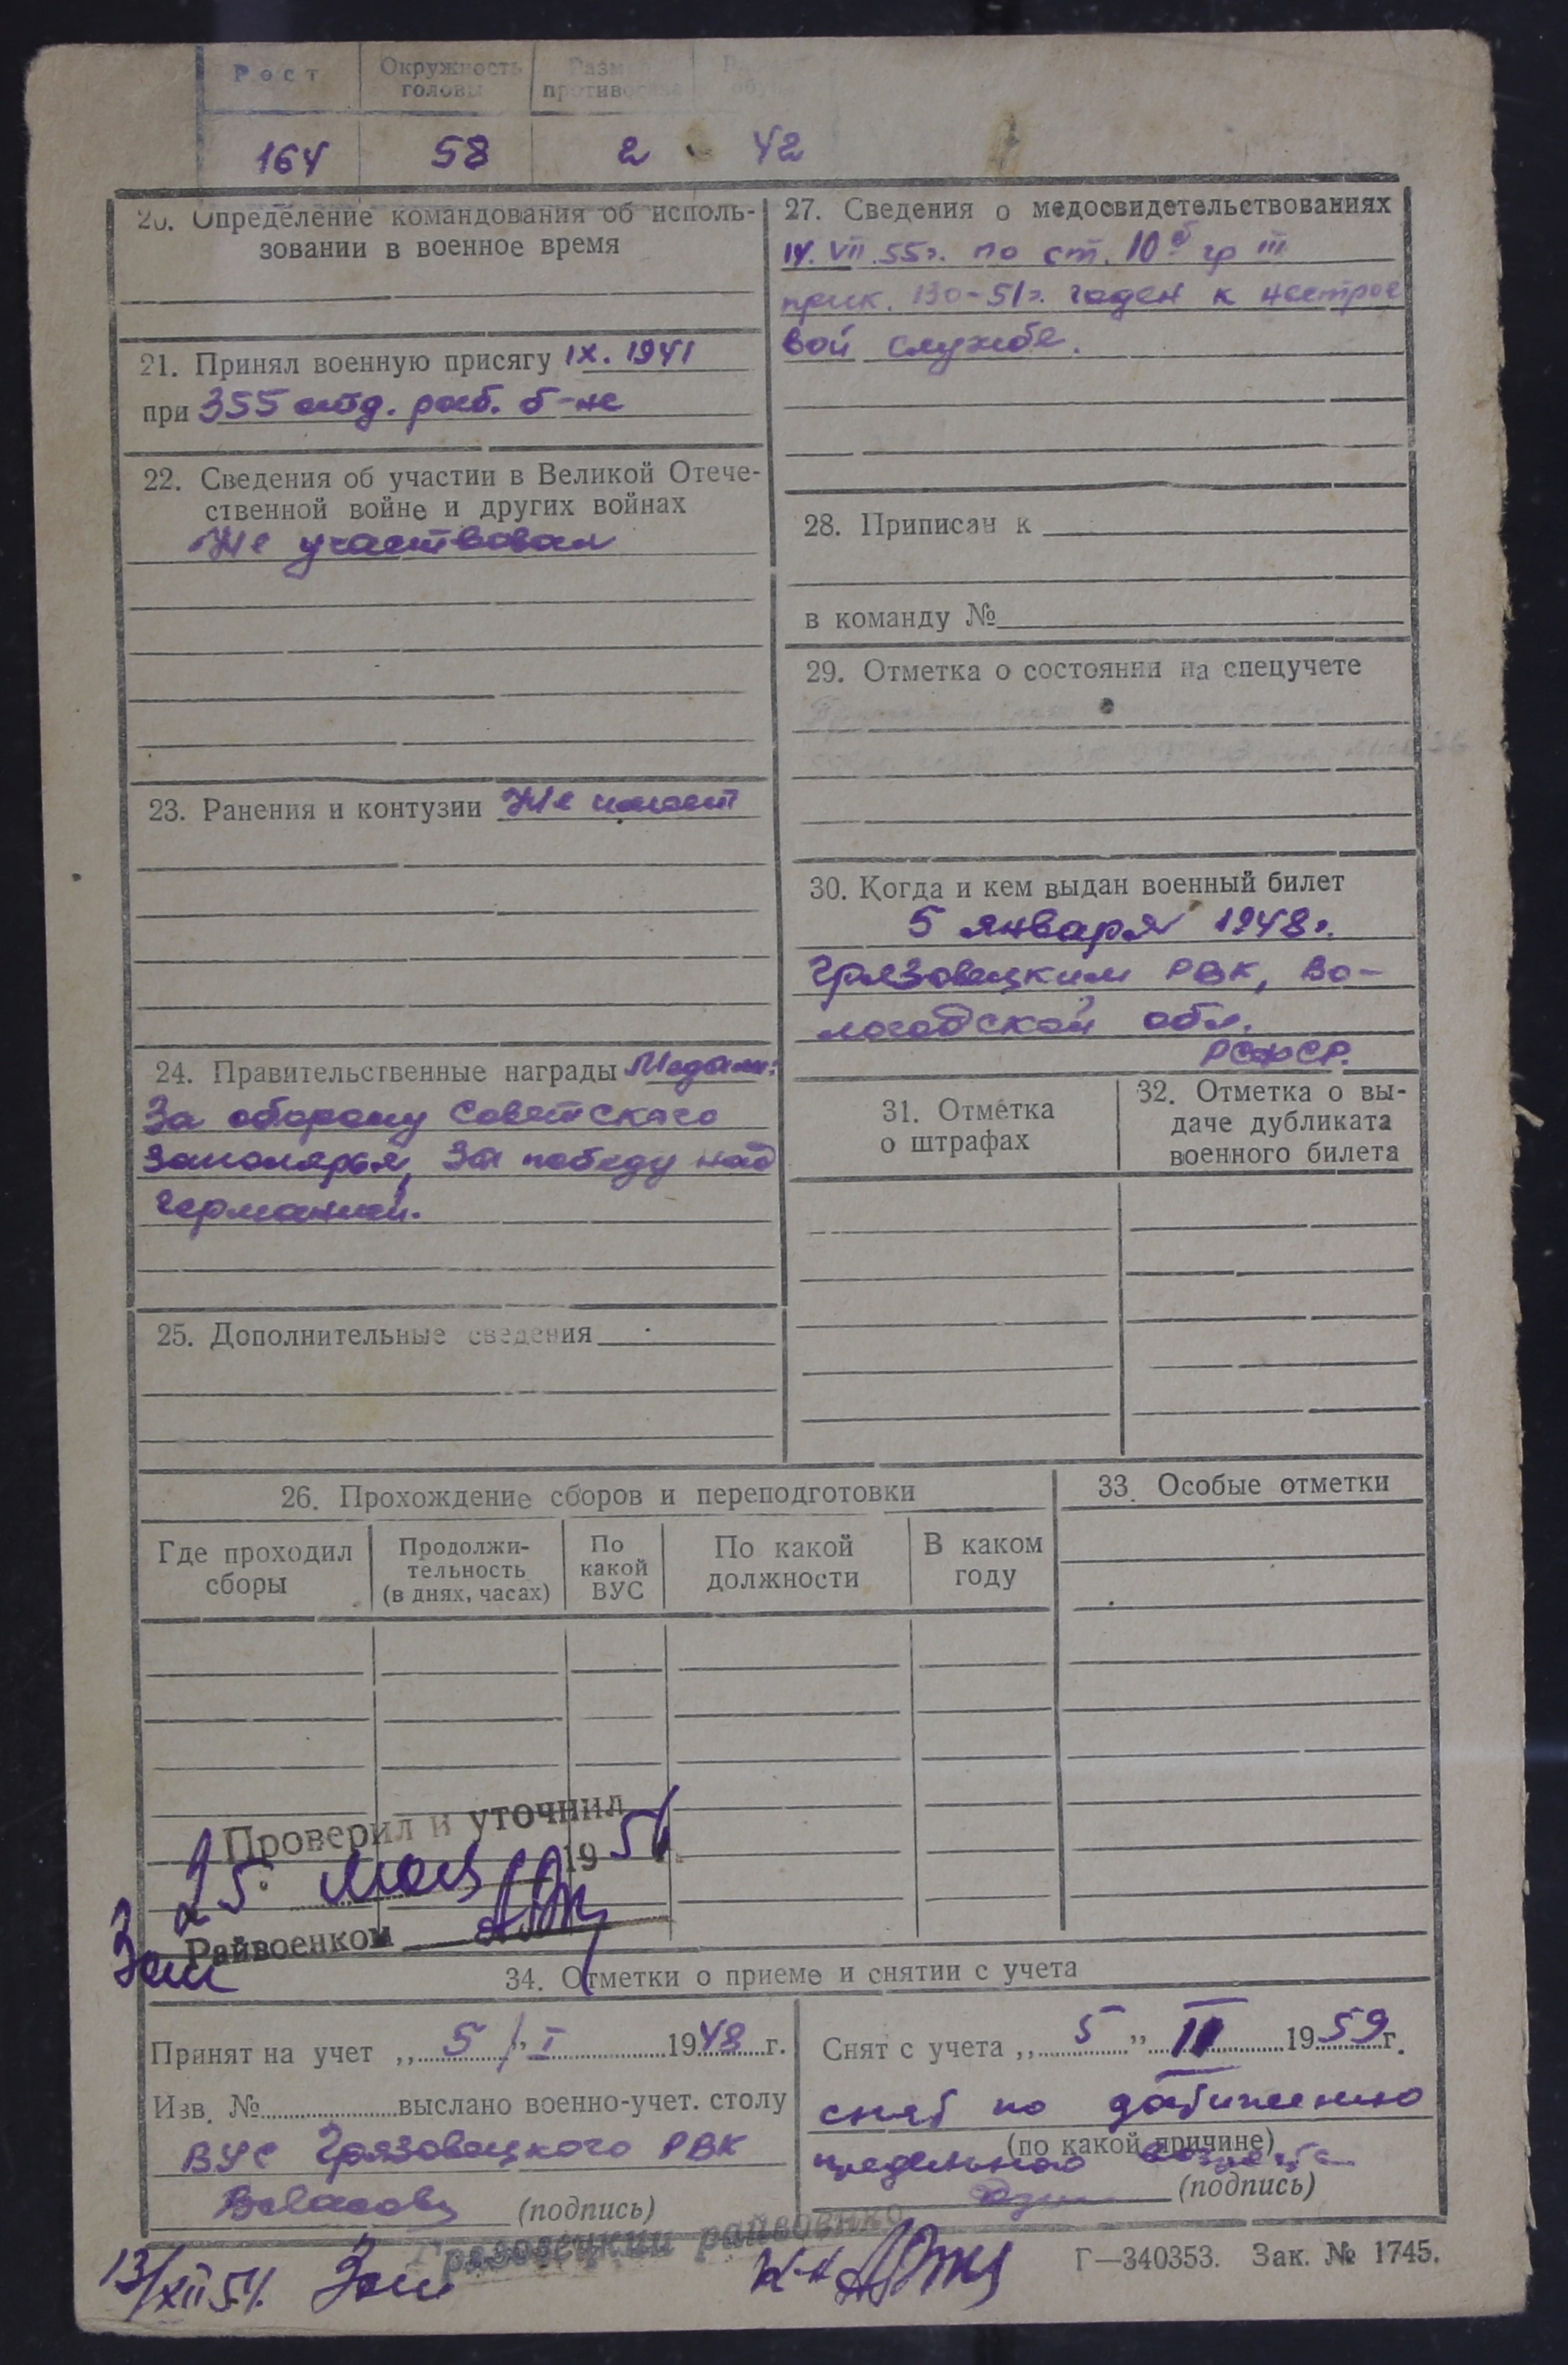 Рост Окружность головы Разм противогаза
164 58 2 42
20. Определение командования об исполь-
зовании в военное время
21. Принял военную присягу IX. 1941
при 355 отд. раб. б-не
22. Сведения об участии в Великой Отече-
ственной войне и других войнах
Не участвовал
23. Ранения и контузии Не имеет
24. Правительственные награды Медали:
За оборону Советского
Заполярья, За победу над
Германией.
25. Дополнительные сведения
27. Сведения о медосвидетельствованиях
14. VII. 55г. по ст. 10б гр III
прик. 130-51г. годен к нестрое
вой службе.
28. Приписан к
в команду №
29. Отметка о состоянии на спецучете
30. Когда и кем выдан военный билет
5 января 1948г.
Грязовецким РВК, Во-
логодской обл.
РСФСР.
31. Отметка
о штрафах
32. Отметка о вы-
даче дубликата
военного билета
26. Прохождение сборов и переподготовки
Где проходил
сборы
Продолжи-
тельность
(в днях, часах)
По
какой
ВУС
По какой
должности
В каком
году
33. Особые отметки
Проверил и уточнил
25. мая 1956
Зам Райвоенком
34. Отметки о приеме и снятии с учета
Принят на учет „5/" I 1948 г.
Изв. № выслано военно-учет. столу
ВУС Грязовецкого РВК
(подпись)
Снят с учета „5" II 1959 г.
снят по достижению
(по какой причине)
предельного возраста
(подпись)
Грязовецкий райвоенко
13/XII 54. Зам
Г—340353. Зак. № 1745.